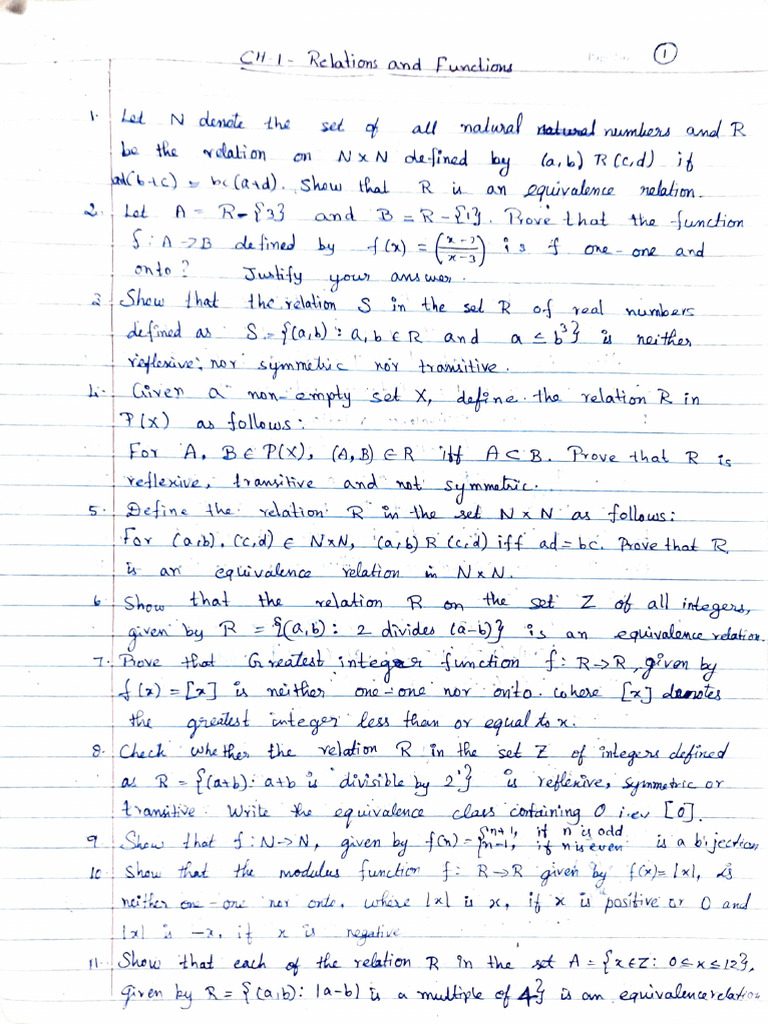 CH-1- Relations and Functions
1
1. Let N denote the set of all natural natural numbers and R
be the relation on N×N defined by (a,b) R (c,d) if
ad(b+c) = bc(a+d). Show that R is an equivalence relation.
2. Let A = R-{3} and B = R-{1}. Prove that the function
f: A→B defined by f(x) = (x-2/x-3) is f one-one and
onto? Justify your answer.
3 Show that the relation S in the set R of real numbers
defined as S = {(a,b) : a, b ∈ R and a ≤ b³} is neither
reflexive, nor symmetric nor transitive.
4. Given a non-empty set X, define the relation R in
P(X) as follows:
For A, B ∈ P(X), (A,B) ∈ R iff A⊂B. Prove that R is
reflexive, transitive and not symmetric.
5. Define the relation R in the set N×N as follows:
For (a,b), (c,d) ∈ N×N, (a,b) R (c,d) iff ad = bc. Prove that R
is an equivalence relation in N×N.
6 Show that the relation R on the set Z of all integers,
given by R = {(a,b) : 2 divides (a-b)} is an equivalence relation.
7. Prove that Greatest integer function f: R→R, given by
f(x) = [x] is neither one-one nor onto. where [x] denotes
the greatest integer less than or equal to x.
8. Check whether the relation R in the set Z of integers defined
as R = {(a+b) : a+b is "divisible by 2"} is reflexive, symmetric or
transitive. Write the equivalence class containing 0 i.e. [0].
9 Show that f: N→N, given by f(n) = {n+1, if n is odd
n-1, if n is even is a bijection
10 Show that the modulus function f: R→R given by f(x) = |x|, is
neither one-one nor onto, where |x| is x, if x is positive or 0 and
|x| is -x, if x is negative
11. Show that each of the relation R in the set A = {x∈Z: 0≤x≤12},
given by R = {(a,b) : |a-b| is a multiple of 4} is an equivalence relation